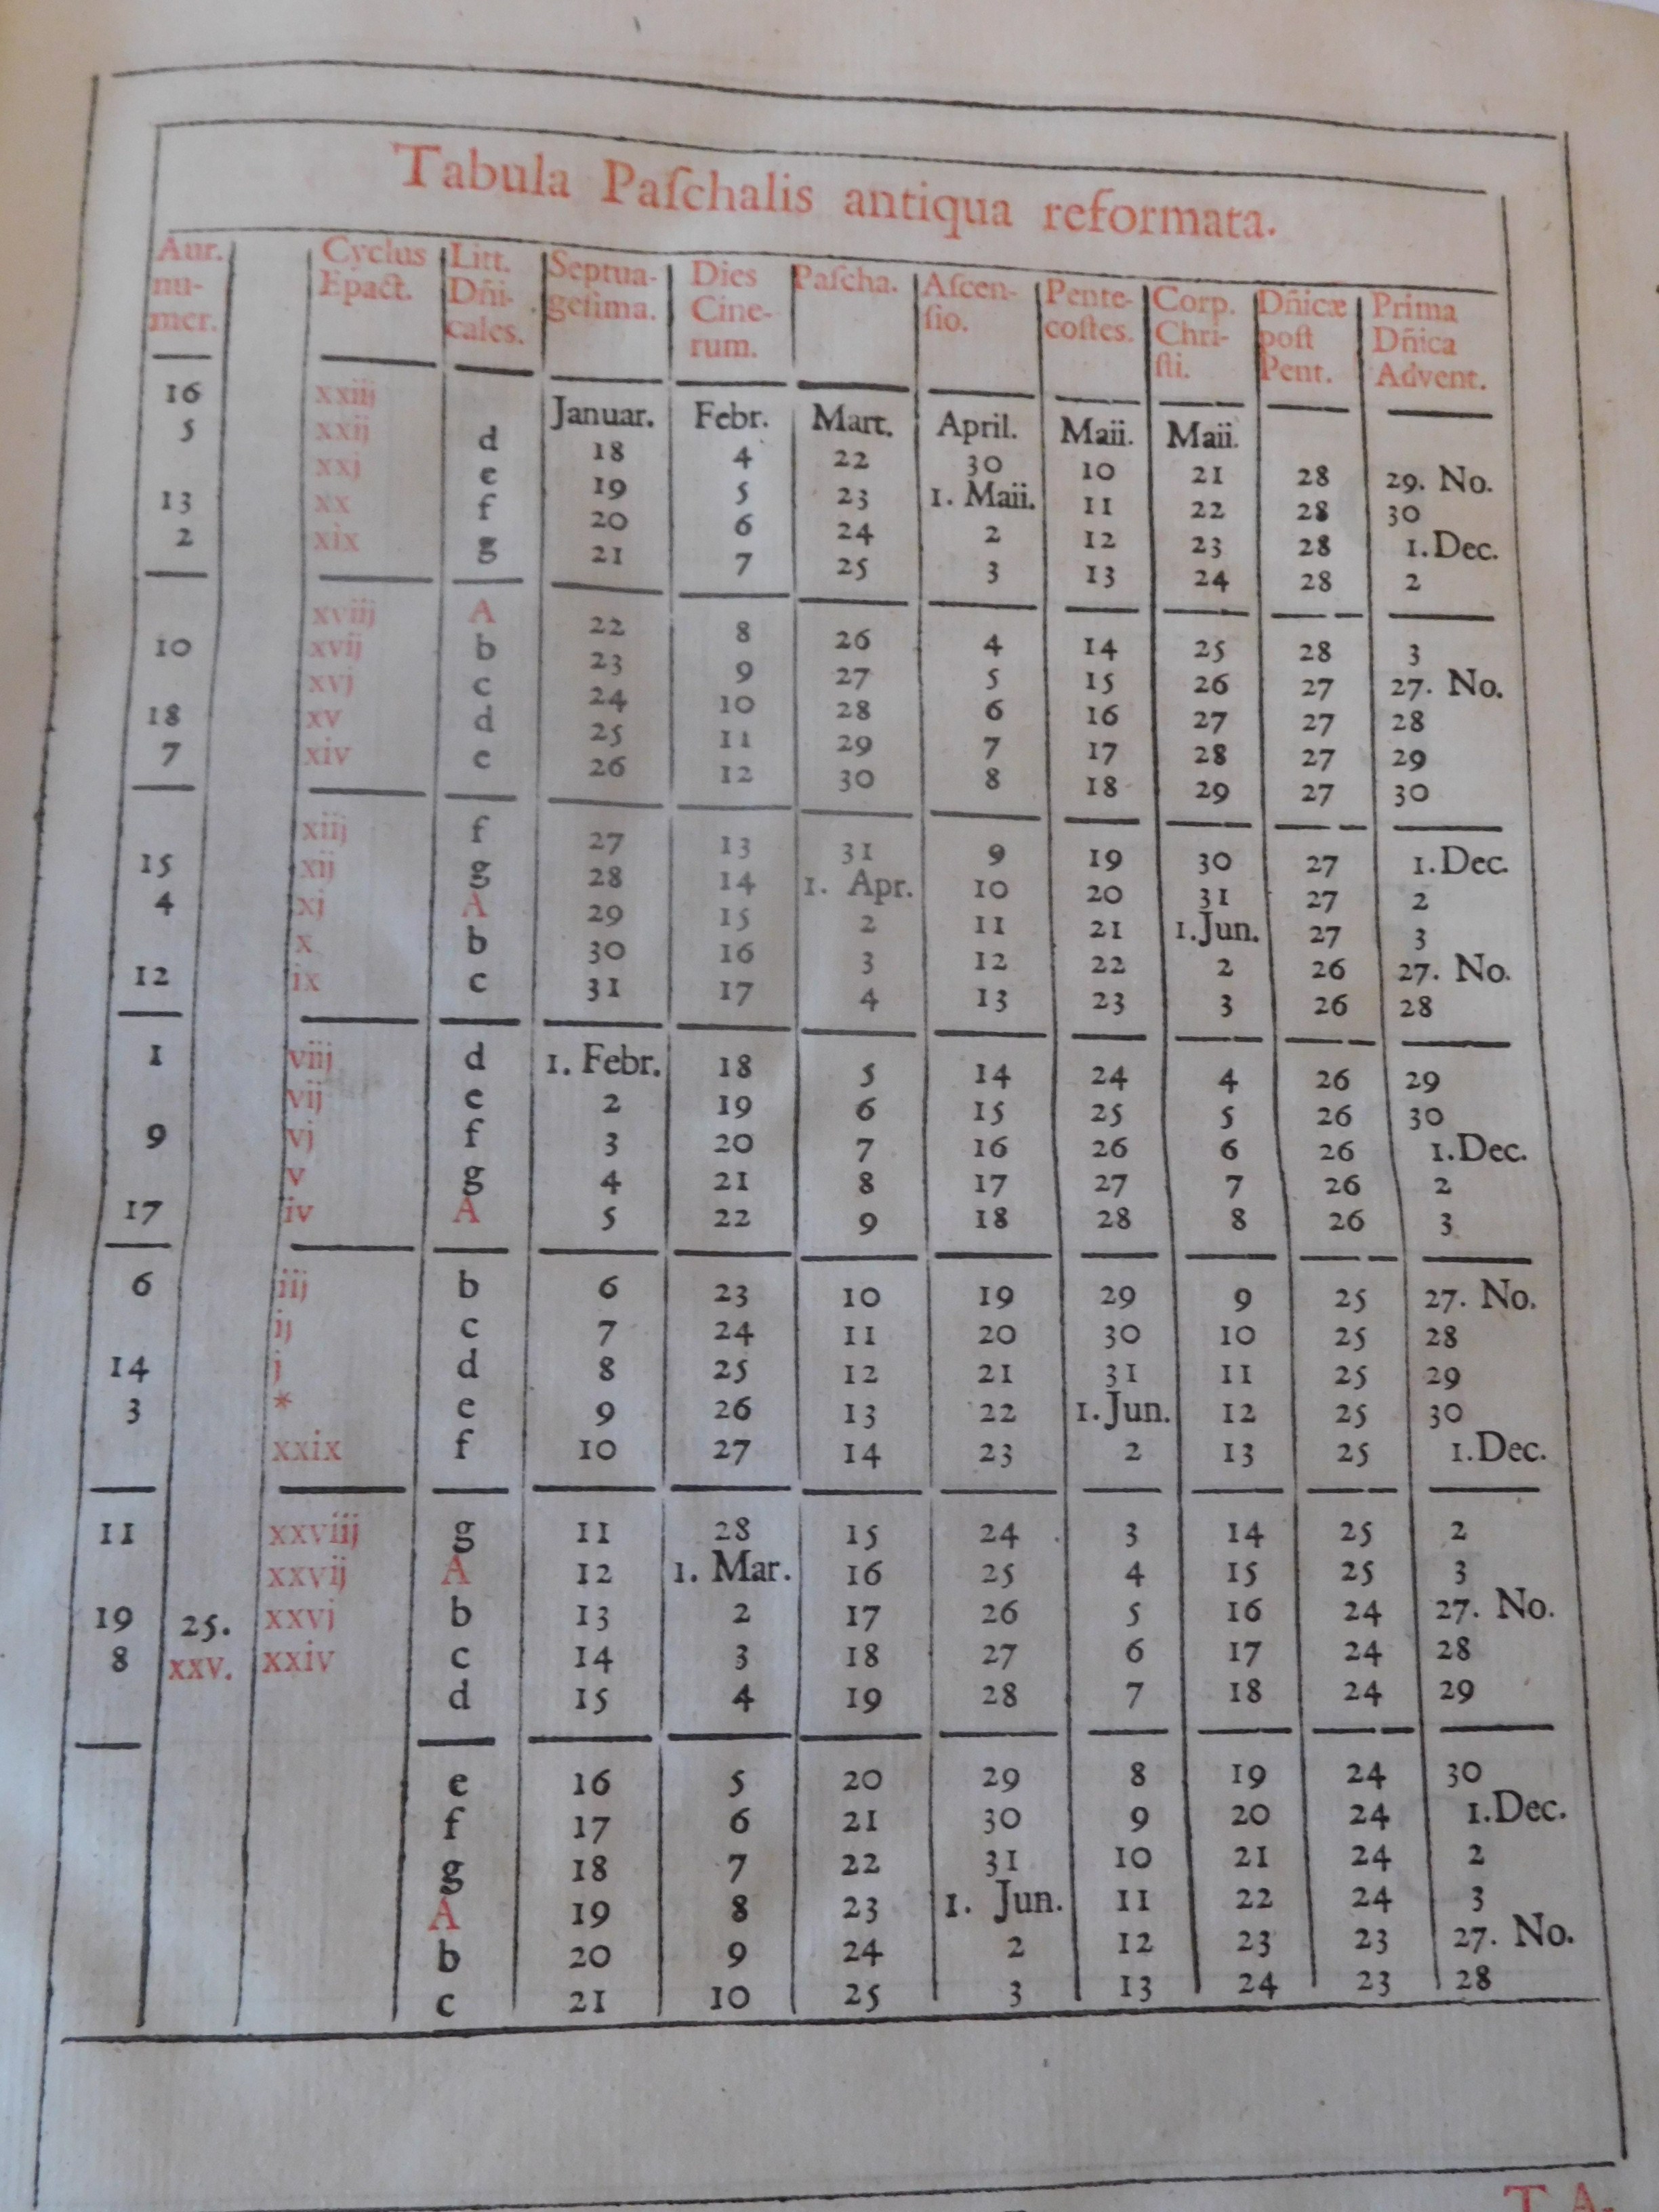 Tabula Paſchalis antiqua reformata.
Aur. Cyclus Litt. Septua- Dies Paſcha. Aſcen- Pente- Corp. Dñicæ Prima
nu- Epact. Dñi- geſima. Cine- ſio. coſtes. Chri- poſt Dñica
mer. cales. rum. ſti. Pent. Advent.
16 xxiij Januar. Febr. Mart. April. Maii. Maii.
5 xxij d 18 4 22 30 10 21 28 29. No.
xxj e 19 5 23 1. Maii. 11 22 28 30
13 xx f 20 6 24 2 12 23 28 1. Dec.
2 xix g 21 7 25 3 13 24 28 2
xviij A 22 8 26 4 14 25 28 3
10 xvij b 23 9 27 5 15 26 27 27. No.
xvj c 24 10 28 6 16 27 27 28
18 xv d 25 11 29 7 17 28 27 29
7 xiv e 26 12 30 8 18 29 27 30
xiij f 27 13 31 9 19 30 27 1. Dec.
15 xij g 28 14 1. Apr. 10 20 31 27 2
4 xj A 29 15 2 11 21 1. Jun. 27 3
x b 30 16 3 12 22 2 26 27. No.
12 ix c 31 17 4 13 23 3 26 28
1 viij d 1. Febr. 18 5 14 24 4 26 29
vij e 2 19 6 15 25 5 26 30
9 vj f 3 20 7 16 26 6 26 1. Dec.
v g 4 21 8 17 27 7 26 2
17 iv A 5 22 9 18 28 8 26 3
6 iij b 6 23 10 19 29 9 25 27. No.
ij c 7 24 11 20 30 10 25 28
14 j d 8 25 12 21 31 11 25 29
3 * e 9 26 13 22 1. Jun. 12 25 30
xxix f 10 27 14 23 2 13 25 1. Dec.
11 xxviij g 11 28 15 24 3 14 25 2
xxvij A 12 1. Mar. 16 25 4 15 25 3
19 25. xxvj b 13 2 17 26 5 16 24 27. No.
8 xxv. xxiv c 14 3 18 27 6 17 24 28
d 15 4 19 28 7 18 24 29
e 16 5 20 29 8 19 24 30
f 17 6 21 30 9 20 24 1. Dec.
g 18 7 22 31 10 21 24 2
A 19 8 23 1. Jun. 11 22 24 3
b 20 9 24 2 12 23 23 27. No.
c 21 10 25 3 13 24 23 28
TA-